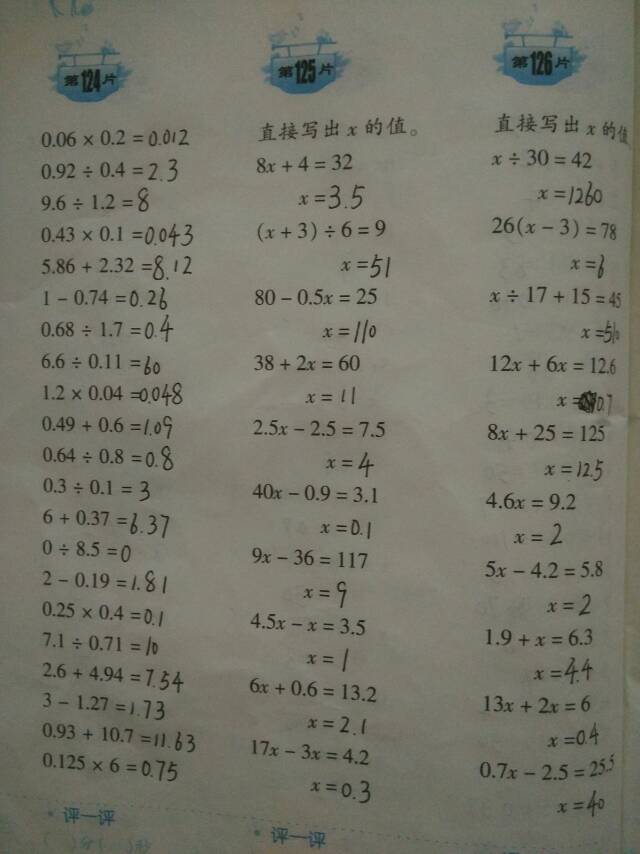 第124片
0.06 × 0.2 = 0.012
0.92 ÷ 0.4 = 2.3
9.6 ÷ 1.2 = 8
0.43 × 0.1 = 0.043
5.86 + 2.32 = 8.12
1 − 0.74 = 0.26
0.68 ÷ 1.7 = 0.4
6.6 ÷ 0.11 = 60
1.2 × 0.04 = 0.048
0.49 + 0.6 = 1.09
0.64 ÷ 0.8 = 0.8
0.3 ÷ 0.1 = 3
6 + 0.37 = 6.37
0 ÷ 8.5 = 0
2 − 0.19 = 1.81
0.25 × 0.4 = 0.1
7.1 ÷ 0.71 = 10
2.6 + 4.94 = 7.54
3 − 1.27 = 1.73
0.93 + 10.7 = 11.63
0.125 × 6 = 0.75
评一评
第125片
直接写出 x 的值。
8x + 4 = 32
x = 3.5
(x + 3) ÷ 6 = 9
x = 51
80 − 0.5x = 25
x = 110
38 + 2x = 60
x = 11
2.5x − 2.5 = 7.5
x = 4
40x − 0.9 = 3.1
x = 0.1
9x − 36 = 117
x = 9
4.5x − x = 3.5
x = 1
6x + 0.6 = 13.2
x = 2.1
17x − 3x = 4.2
x = 0.3
评一评
第126片
直接写出 x 的值
x ÷ 30 = 42
x = 1260
26(x − 3) = 78
x = 6
x ÷ 17 + 15 = 45
x = 510
12x + 6x = 12.6
x = 0.7
8x + 25 = 125
x = 12.5
4.6x = 9.2
x = 2
5x − 4.2 = 5.8
x = 2
1.9 + x = 6.3
x = 4.4
13x + 2x = 6
x = 0.4
0.7x − 2.5 = 25.5
x = 40